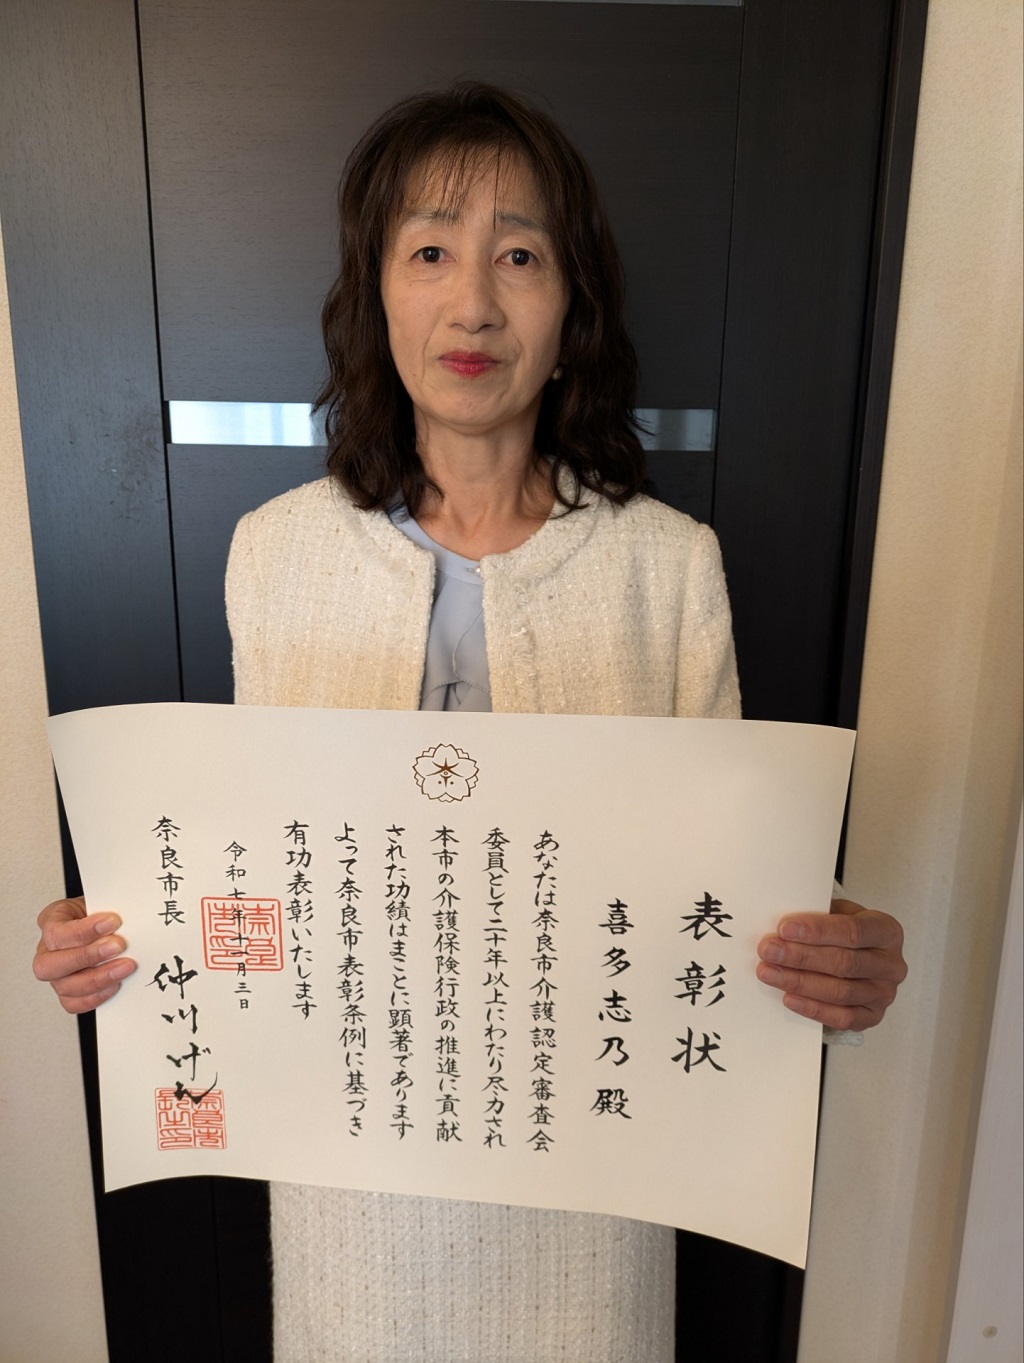 表彰状
喜多志乃殿
あなたは奈良市介護認定審査会
委員として二十年以上にわたり尽力され
本市の介護保険行政の推進に貢献
された功績はまことに顕著であります
よって奈良市表彰条例に基づき
有功表彰いたします
令和七年十一月三日
奈良市長 仲川げん